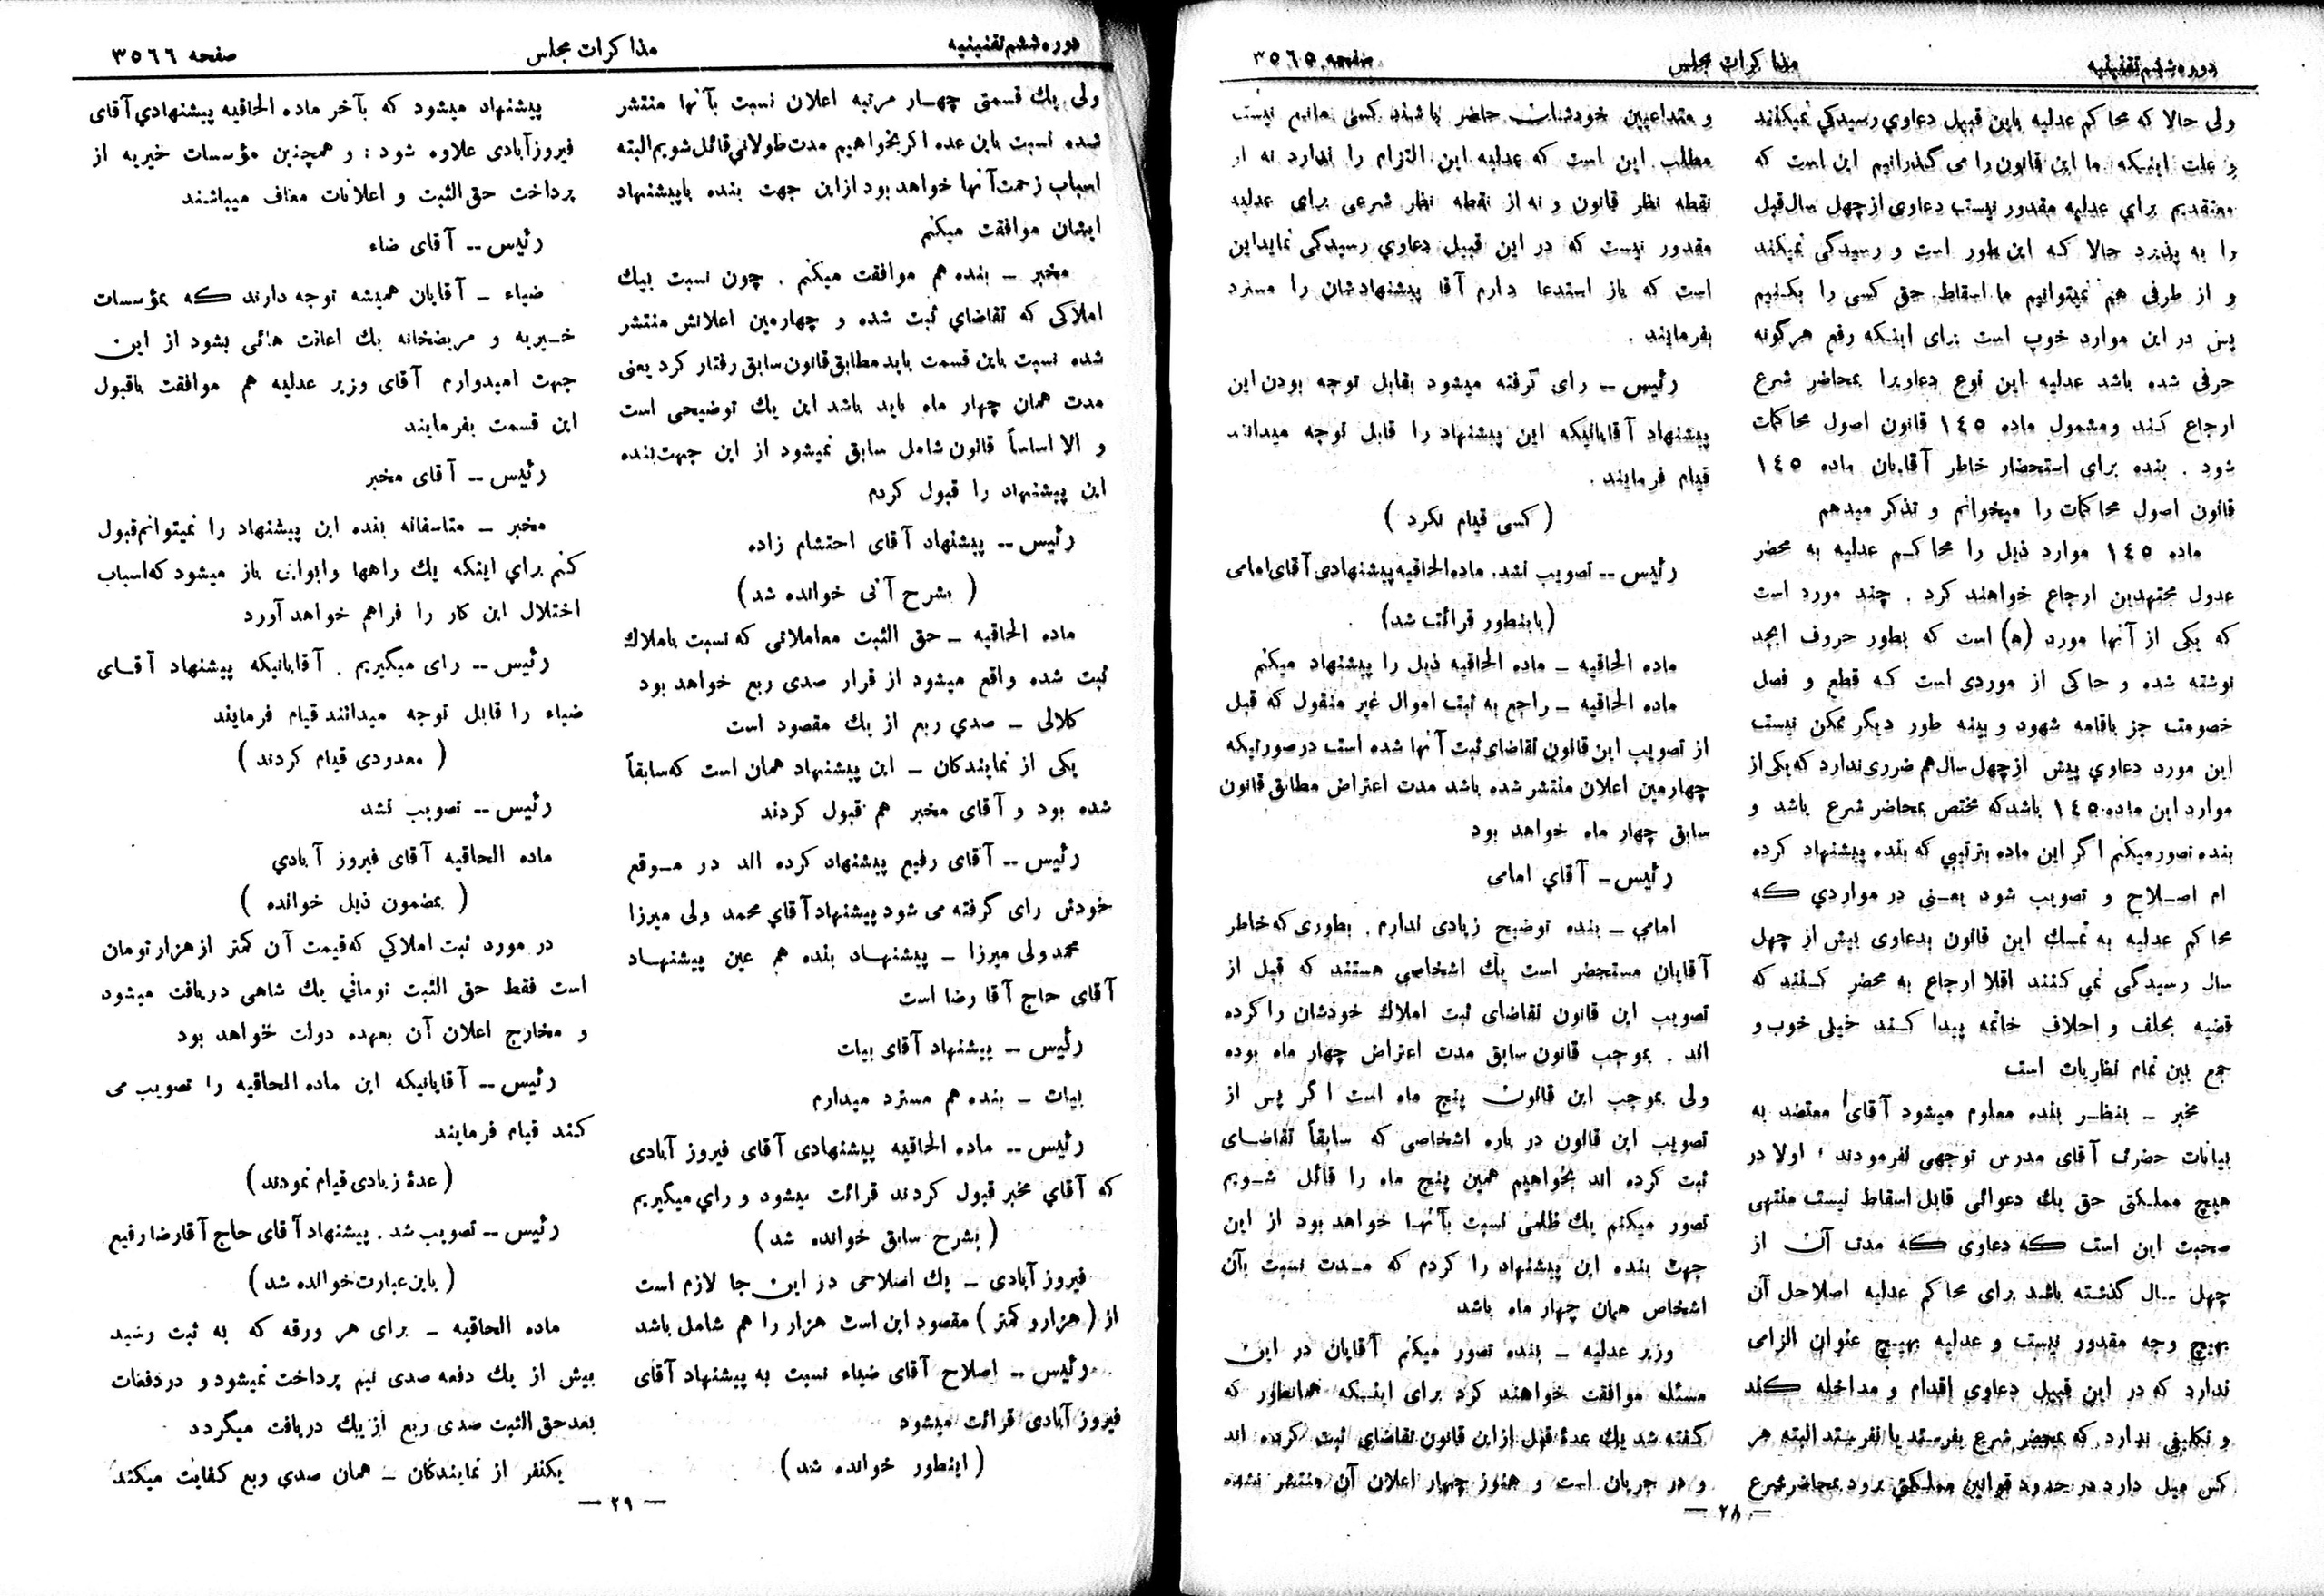 دوره ششم تقنینیه
مذاکرات مجلس
صفحه ۳۵۶۵
ولی حالا که محاکم عدلیه باین قبیل دعاوی رسیدگی نمیکنند
و علت اینکه ما این قانون را می گذرانیم این است که
معتقدیم برای عدلیه مقدور نیست دعاوی از چهل سال قبل
را به پذیرد حالا که این طور است و رسیدگی نمیکند
و از طرفی هم نمیتوانیم ما اسقاط حق کسی را بکنیم
پس در این موارد خوب است برای اینکه رفع هرگونه
حرفی شده باشد عدلیه این نوع دعاویرا بمحاضر شرع
ارجاع کند ومشمول ماده ۱٤٥ قانون اصول محاکمات
شود . بنده برای استحضار خاطر آقایان ماده ۱٤٥
قانون اصول محاکمات را میخوانم و تذکر میدهم
ماده ۱٤٥ موارد ذیل را محاکم عدلیه به محضر
عدول مجتهدین ارجاع خواهند کرد . چند مورد است
که یکی از آنها مورد (ه) است که بطور حروف ابجد
نوشته شده و حاکی از موردی است که قطع و فصل
خصومت جز باقامه شهود و بینه طور دیگر ممکن نیست
این مورد دعاوی پیش از چهل سال هم ضرری ندارد که یکی از
موارد این ماده ۱٤٥ باشد که مختص بمحاضر شرع باشد و
بنده تصور میکنم اگر این ماده بترتیبی که بنده پیشنهاد کرده
ام اصلاح و تصویب شود یعنی در مواردی که
محاکم عدلیه به تمسك این قانون بدعاوی بیش از چهل
سال رسیدگی نمی کنند اقلا ارجاع به محضر کنند که
قضیه بحلف و احلاف خاتمه پیدا کند خیلی خوب و
جمع بین تمام نظریات است
مخبر – بنظر بنده معلوم میشود آقای معتضد به
بیانات حضرت آقای مدرس توجهی نفرمودند ، اولا در
هیچ مملکتی حق یك دعوائی قابل اسقاط نیست منتهی
صحبت این است که دعاوی که مدت آن از
چهل سال گذشته باشد برای محاکم عدلیه اصلاحل آن
بهیچ وجه مقدور نیست و عدلیه بهیچ عنوان الزامی
ندارد که در این قبیل دعاوی اقدام و مداخله کند
و تکلیفی ندارد که بمحضر شرع بفرستد یا نفرستد البته هر
کس میل دارد در حدود قوانین مملکتی برود بمحاضر شرع
و متداعیین خودشان حاضر باشند کسی مانع نیست
مطلب این است که عدلیه این التزام را ندارد نه از
نقطه نظر قانون و نه از نقطه نظر شرعی برای عدلیه
مقدور نیست که در این قبیل دعاوی رسیدگی نماید این
است که باز استدعا دارم آقا پیشنهادشان را مسترد
بفرمایند .
رئیس -- رای گرفته میشود بقابل توجه بودن این
پیشنهاد آقایانیکه این پیشنهاد را قابل توجه میدانند
قیام فرمایند .
( کسی قیام نکرد )
رئیس -- تصویب نشد. ماده الحاقیه پیشنهادی آقای امامی
(باینطور قرائت شد)
ماده الحاقیه – ماده الحاقیه ذیل را پیشنهاد میکنم
ماده الحاقیه – راجع به ثبت اموال غیر منقول که قبل
از تصویب این قانون تقاضای ثبت آنها شده است در صورتیکه
چهارمین اعلان منتشر شده باشد مدت اعتراض مطابق قانون
سابق چهار ماه خواهد بود
رئیس – آقای امامی
امامی – بنده توضیح زیادی ندارم . بطوری که خاطر
آقایان مستحضر است یك اشخاصی هستند که قبل از
تصویب این قانون تقاضای ثبت املاك خودشان را کرده
اند . بموجب قانون سابق مدت اعتراض چهار ماه بوده
ولی بموجب این قانون پنج ماه است اگر پس از
تصویب این قانون در باره اشخاصی که سابقاً تقاضای
ثبت کرده اند بخواهیم همین پنج ماه را قائل شویم
تصور میکنم یك ظلمی نسبت بآنها خواهد بود از این
جهت بنده این پیشنهاد را کردم که مدت نسبت بآن
اشخاص همان چهار ماه باشد
وزیر عدلیه – بنده تصور میکنم آقایان در این
مسئله موافقت خواهند کرد برای اینکه همانطور که
گفته شد یك عدهٔ قبل از این قانون تقاضای ثبت کرده اند
و در جریان است و هنوز چهار اعلان آن منتشر نشده
— ۲۸ —
دوره ششم تقنینیه
مذاکرات مجلس
صفحه ۳۵۶۶
ولی یك قسمتی چهار مرتبه اعلان نسبت بآنها منتشر
شده نسبت باین عده اگر بخواهیم مدت طولانی قائل شویم البته
اسباب زحمت آنها خواهد بود از این جهت بنده با پیشنهاد
ایشان موافقت میکنم
مخبر – بنده هم موافقت میکنم . چون نسبت بیك
املاکی که تقاضای ثبت شده و چهارمین اعلانش منتشر
شده نسبت باین قسمت باید مطابق قانون سابق رفتار کرد یعنی
مدت همان چهار ماه باید باشد این یك توضیحی است
و الا اساساً قانون شامل سابق نمیشود از این جهت بنده
این پیشنهاد را قبول کردم
رئیس -- پیشنهاد آقای احتشام زاده
( بشرح آتی خوانده شد )
ماده الحاقیه – حق الثبت معاملاتی که نسبت باملاك
ثبت شده واقع میشود از قرار صدی ربع خواهد بود
کلالی – صدی ربع از یك مقصود است
یکی از نمایندگان – این پیشنهاد همان است که سابقاً
شده بود و آقای مخبر هم قبول کردند
رئیس -- آقای رفیع پیشنهاد کرده اند در موقع
خودش رای گرفته می شود پیشنهاد آقای محمد ولی میرزا
محمد ولی میرزا – پیشنهاد بنده هم عین پیشنهاد
آقای حاج آقا رضا است
رئیس – پیشنهاد آقای بیات
بیات – بنده هم مسترد میدارم
رئیس -- ماده الحاقیه پیشنهادی آقای فیروز آبادی
که آقای مخبر قبول کردند قرائت میشود و رای میگیریم
( بشرح سابق خوانده شد )
فیروز آبادی – یك اصلاحی در این جا لازم است
از ( هزار و کمتر ) مقصود این است هزار را هم شامل باشد
رئیس -- اصلاح آقای ضیاء نسبت به پیشنهاد آقای
فیروز آبادی قرائت میشود
( اینطور خوانده شد )
پیشنهاد میشود که بآخر ماده الحاقیه پیشنهادی آقای
فیروزآبادی علاوه شود : و همچنین مؤسسات خیریه از
پرداخت حق الثبت و اعلانات معاف میباشند
رئیس -- آقای ضاء
ضیاء – آقایان همیشه توجه دارند که بمؤسسات
خیریه و مریضخانه یك اعانت هائی بشود از این
جهت امیدوارم آقای وزیر عدلیه هم موافقت باقبول
این قسمت بفرمایند
رئیس -- آقای مخبر
مخبر – متاسفانه بنده این پیشنهاد را نمیتوانم قبول
کنم برای اینکه یك راهها وابوابی باز میشود که اسباب
اختلال این کار را فراهم خواهد آورد
رئیس -- رای میگیریم . آقایانیکه پیشنهاد آقای
ضیاء را قابل توجه میدانند قیام فرمایند
( معدودی قیام کردند )
رئیس -- تصویب نشد
ماده الحاقیه آقای فیروز آبادی
( بمضمون ذیل خوانده )
در مورد ثبت املاکی که قیمت آن کمتر از هزار تومان
است فقط حق الثبت تومانی یك شاهی دریافت میشود
و مخارج اعلان آن بعهده دولت خواهد بود
رئیس -- آقایانیکه این ماده الحاقیه را تصویب می
کنند قیام فرمایند
(عدهٔ زیادی قیام نمودند)
رئیس -- تصویب شد . پیشنهاد آقای حاج آقا رضا رفیع
(باین عبارت خوانده شد)
ماده الحاقیه – برای هر ورقه که به ثبت رسید
بیش از یك دفعه صدی نیم پرداخت نمیشود و در دفعات
بعد حق الثبت صدی ربع از یك دریافت میگردد
یکنفر از نمایندگان – همان صدی ربع کفایت میکند
— ۲۹ —